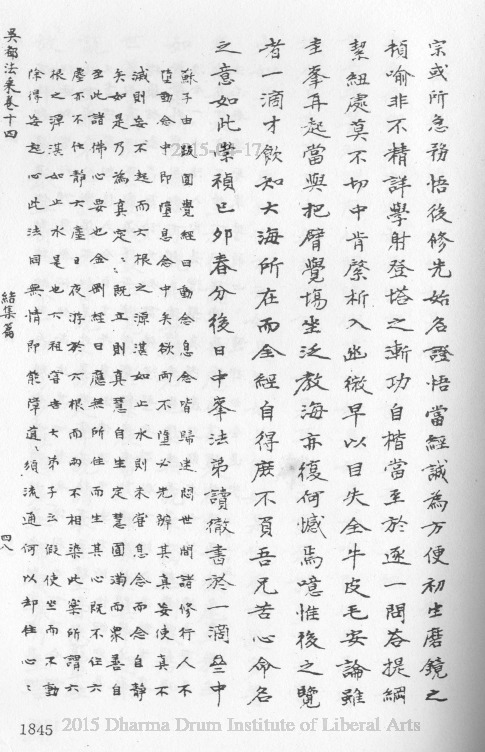 宗或所急務悟後修先始名證悟當經誠為方便初生磨鏡之
楨喻非不精詳學射登塔之漸功自楷當至於逐一問答提綱
絜紐處莫不切中肯綮析入幽微早以目失全牛皮毛安論雖
圭峯再起當與把臂覺場坐泛教海亦復何憾焉噫惟後之覽
者一滴才飲知大海所在而全經自得庶不負吾兄苦心命名
之意如此崇禎己卯春分後日中峯法弟讀徹書於一滴𠫤中
蘇子由跋圓覺經曰動念息念皆歸迷悶世間諸修行人不
墮動念中即墮息念中矣欲兩不墮必先辨其真妄使真不
滅則妄不起而六根之源湛如止水則未嘗息念而念自靜
矣如是乃為真定真定既立則真慧自生定慧圓滿而眾善自
至此諸佛心要也金剛經曰應無所住而生其心既不住六
塵亦不住靜六塵日夜游於六根而兩不相染此樂所謂六
根之源湛如止水是也六祖嘗告大弟子云假使坐而不動
除得妄起心此法同無情即能障道道須流通何以却住心心
吳都法乘卷十四
結集篇
四八
1845
2015-04-17
2015 Dharma Drum Institute of Liberal Arts